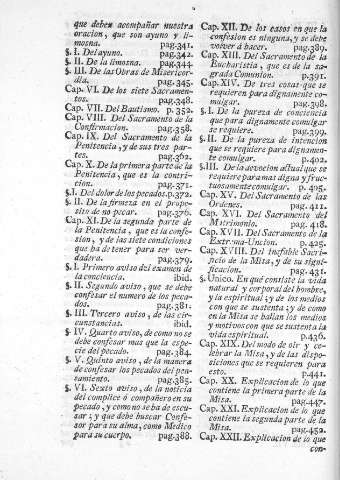 que deben acompañar nuestra
oracion, que son ayuno y li-
mosna. pag.341.
§. I. Del ayuno. pag.342.
§. II. De la limosna. pag.344.
§. III. De las Obras de Misericor-
dia. pag.345.
Cap. VI. De los siete Sacramen-
tos. pag.348.
Cap. VII. Del Bautismo. p. 352.
Cap. VIII. Del Sacramento de la
Confirmacion. pag.358.
Cap. IX. Del Sacramento de la
Penitencia, y de sus tres par-
tes. pag.362.
Cap. X. De la primera parte de la
Penitencia, que es la contri-
cion. pag.371.
§.I. Del dolor de los pecados.p.372.
§. II. De la firmeza en el propo-
sito de no pecar. pag.376.
Cap. XI. De la segunda parte de
la Penitencia, que es la confe-
sion, y de las siete condiciones
que ha de tener para ser ver-
dadera. pag.379.
§. I. Primero aviso del examen de
la conciencia. ibid.
§. II. Segundo aviso, que se debe
confesar el numero de los peca-
dos. pag.381.
§. III. Tercero aviso, de las cir-
cunstancias. ibid.
§ IV. Quarto aviso, de como no se
debe confesar mas que la espe-
cie del pecado. pag.384.
§. V. Quinto aviso, de la manera
de confesar los pecados del pen-
samiento. pag.385.
§. VI. Sexto aviso, de la noticia
del complice ó compañero en su
pecado, y como no se ha de escu-
sar; y que debe buscar Confe-
sor para su alma, como Medico
para su cuerpo. pag.388.
Cap. XII. De los casos en que la
confesion es ninguna, y se debe
volver á hacer. pag.389.
Cap. XIII. Del Sacramento de la
Eucharistia, que es de la sa-
grada Comunion. p.391.
Cap. XIV. De tres cosas que se
requieren para dignamente co-
mulgar. pag.398.
§. I. De la pureza de conciencia
que para dignamente comulgar
se requiere. pag.399.
§. II. De la pureza de intencion
que se requiere para dignamen-
te comulgar. p.402.
§.III. De la devocion actual que se
requiere para mas digna y fruc-
tuosamente comulgar. p. 405.
Cap. XV. Del Sacramento de las
Ordenes. pag. 411.
Cap. XVI. Del Sacramento del
Matrimonio. pag. 418.
Cap. XVII. Del Sacramento de la
Extrema-Uncion. p. 425.
Cap. XVIII. Del inefable Sacri-
ficio de la Misa, y de su signi-
ficacion. pag. 431.
§. Unico. En qué consiste la vida
natural y corporal del hombre,
y la espiritual; y de los medios
con que se sustenta; y de como
en la Misa se hallan los medios
y motivos con que se sustenta la
vida espiritual. p.436.
Cap. XIX. Del modo de oir y ce-
lebrar la Misa, y de las dispo-
siciones que se requieren para
esto. p.441.
Cap. XX. Explicacion de lo que
contiene la primera parte de la
Misa. pag.447.
Cap. XXI. Explicacion de lo que
contiene la segunda parte de la
Misa. pag.452.
Cap. XXII. Explicacion de lo que
con-